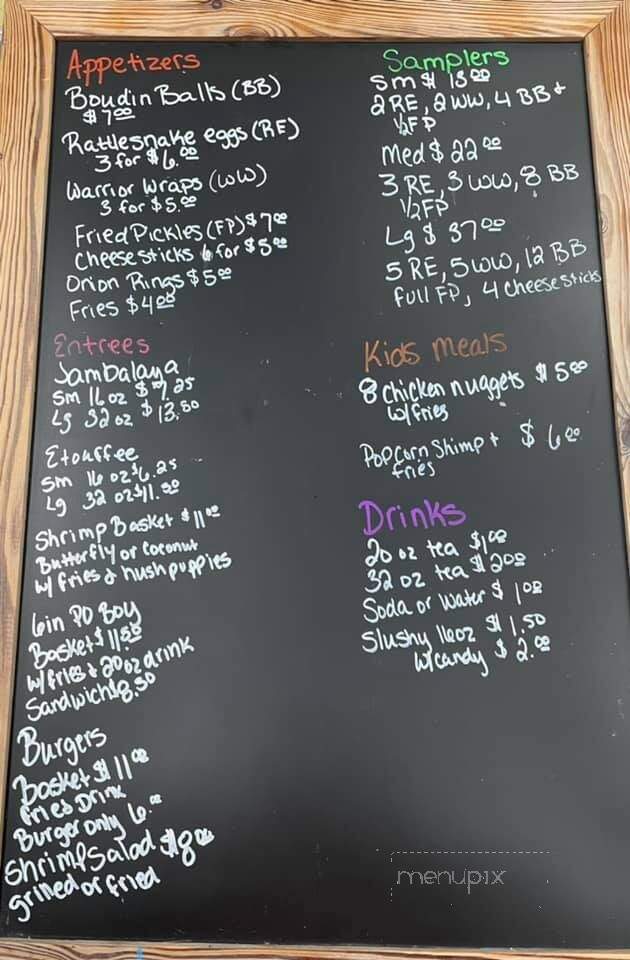 Appetizers
Boudin Balls (BB)
$7.00
Rattlesnake eggs (RE)
3 for $6.00
Warrior Wraps (WW)
3 for $5.00
Fried Pickles (FP) $7.00
Cheesesticks 6 for $5.00
Onion Rings $5.00
Fries $4.00
Entrees
Jambalaya
Sm 16 oz $7.25
Lg 32 oz $13.50
Etouffee
Sm 16 oz $6.25
Lg 32 oz $11.50
Shrimp Basket $11.00
Butterfly or Coconut
w/ fries & hushpuppies
6in PO Boy
Basket $11.50
w/ fries & 20oz drink
Sandwich $8.50
Burgers
Basket $11.00
fries Drink
Burger only 6.00
Shrimp Salad $8.00
grilled or fried
Samplers
Sm $13.00
2 RE, 2 WW, 4 BB +
½ FP
Med $22.00
3 RE, 3 WW, 8 BB
½ FP
Lg $37.00
5 RE, 5 WW, 12 BB
full FP, 4 cheesesticks
Kids meals
8 chicken nuggets $5.00
w/ fries
Popcorn Shimp + $6.00
fries
Drinks
20 oz tea $1.00
32 oz tea $2.00
Soda or Water $1.00
Slushy 16oz $1.50
w/ candy $2.00
menupix